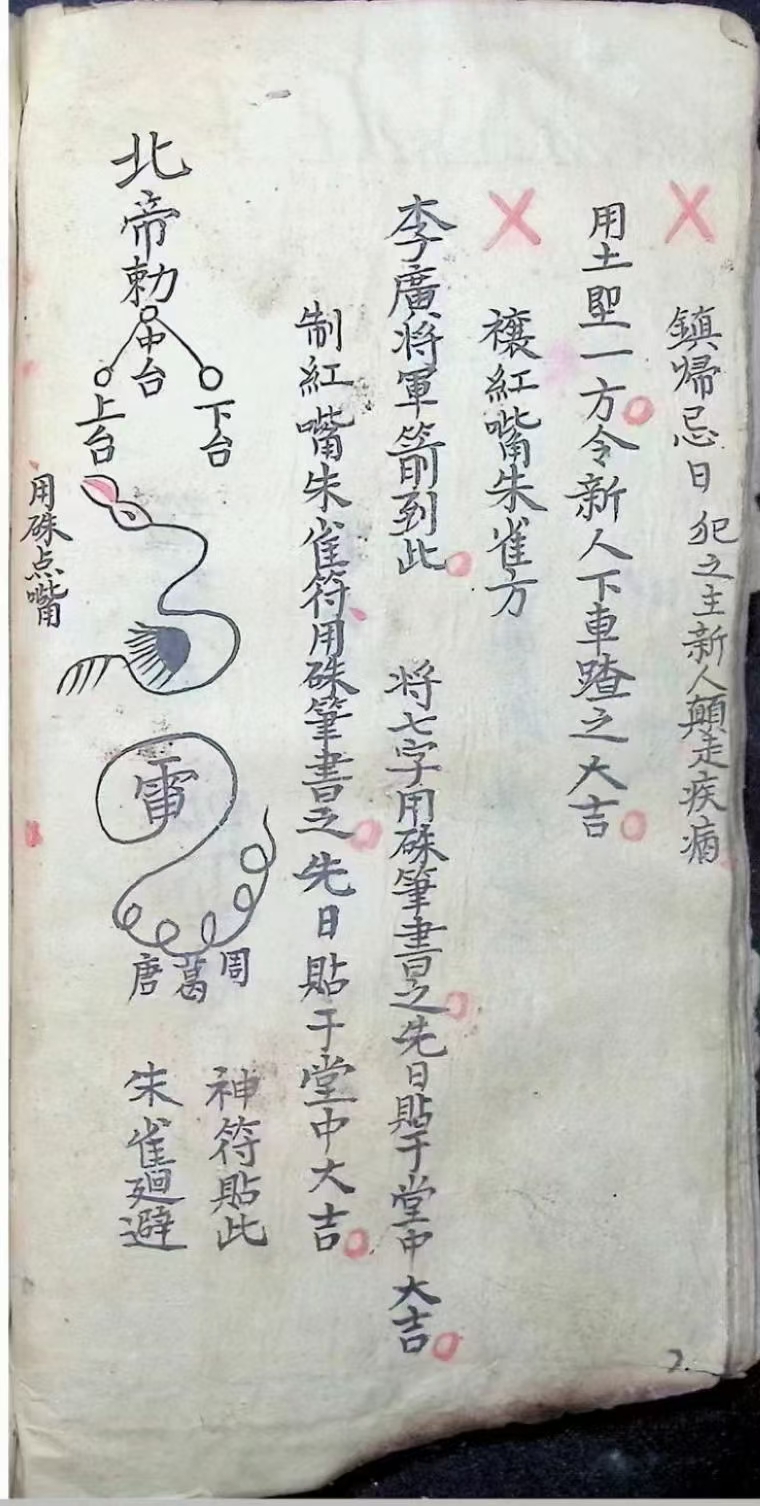 鎮帰忌日 犯之主新人顛走疾病
用土堲一方令新人下車踏之大吉
禳紅嘴朱雀方
李廣将軍箭到此 将七字用硃筆書之先日貼于堂中大吉
制紅嘴朱雀符用硃筆書之先日貼于堂中大吉
北帝勅
中台
下台
上台
用硃点嘴
雷
周
葛
唐
神符貼此
朱雀廻避